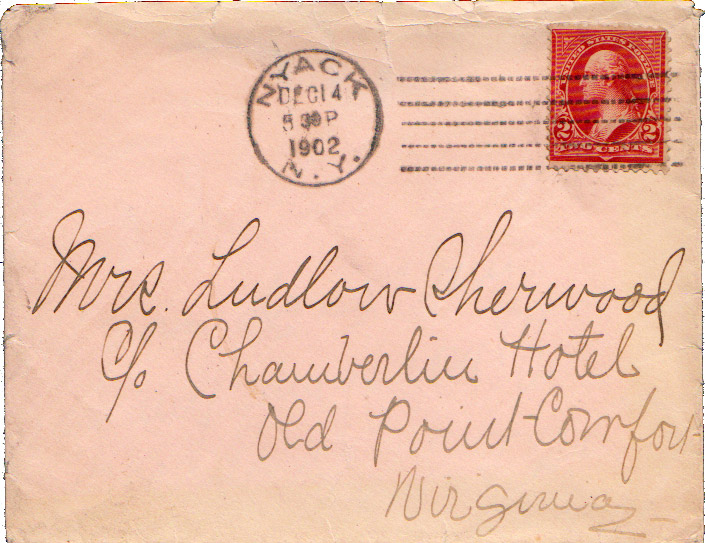 NYACK
DEC 14
5 30 P
1902
N.Y.
UNITED STATES POSTAGE
2 2
TWO CENTS
Mrs. Ludlow Sherwood
c/o Chamberlin Hotel
Old Point Comfort
Virginia